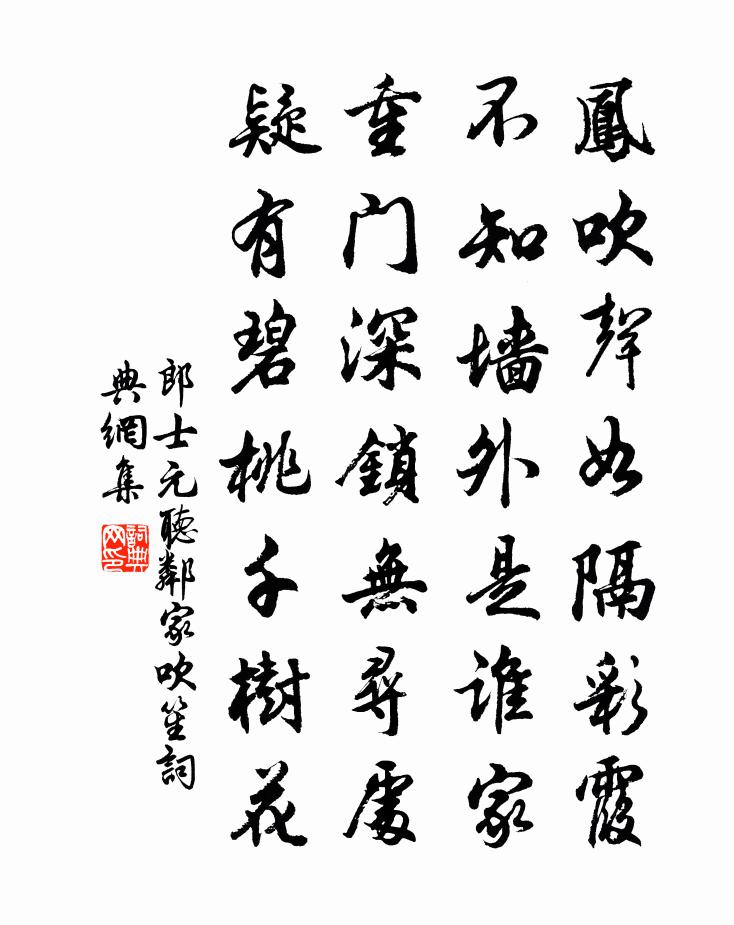 鳳吹聲如隔彩霞
不知墙外是谁家
重门深鎖無尋處
疑有碧桃千樹花
郎士元聽鄰家吹笙詞
典網集
詞典
网印